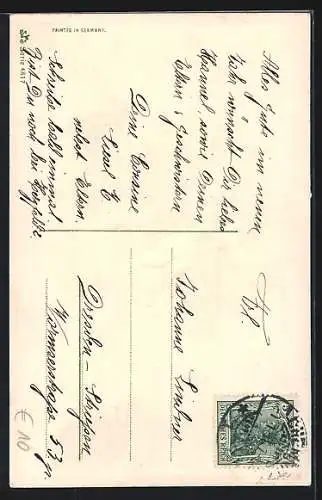 PRINTED IN GERMANY.
Serie 4817
Alles Gute im neuen
Jahr wünscht Dir liebes
Hannel, sowie Deinen
Eltern & Geschwistern
Deine Cousine
Liesel E
nebst Eltern.
Schreibe bald einmal
Bist Du noch bei
Frl.
Johanne
Dresden-Striesen
Wormserstrasse 53 p.
€ 10